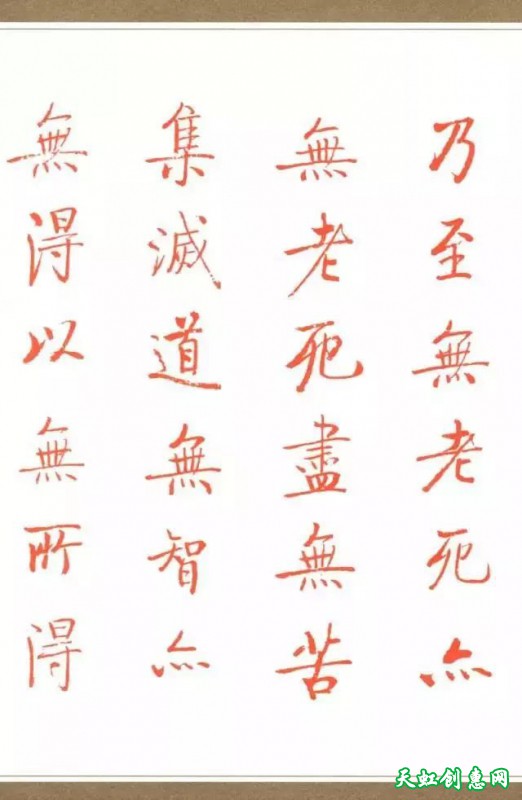 乃至無老死亦
無老死盡無苦
集滅道無智亦
無得以無所得
天虹创惠网